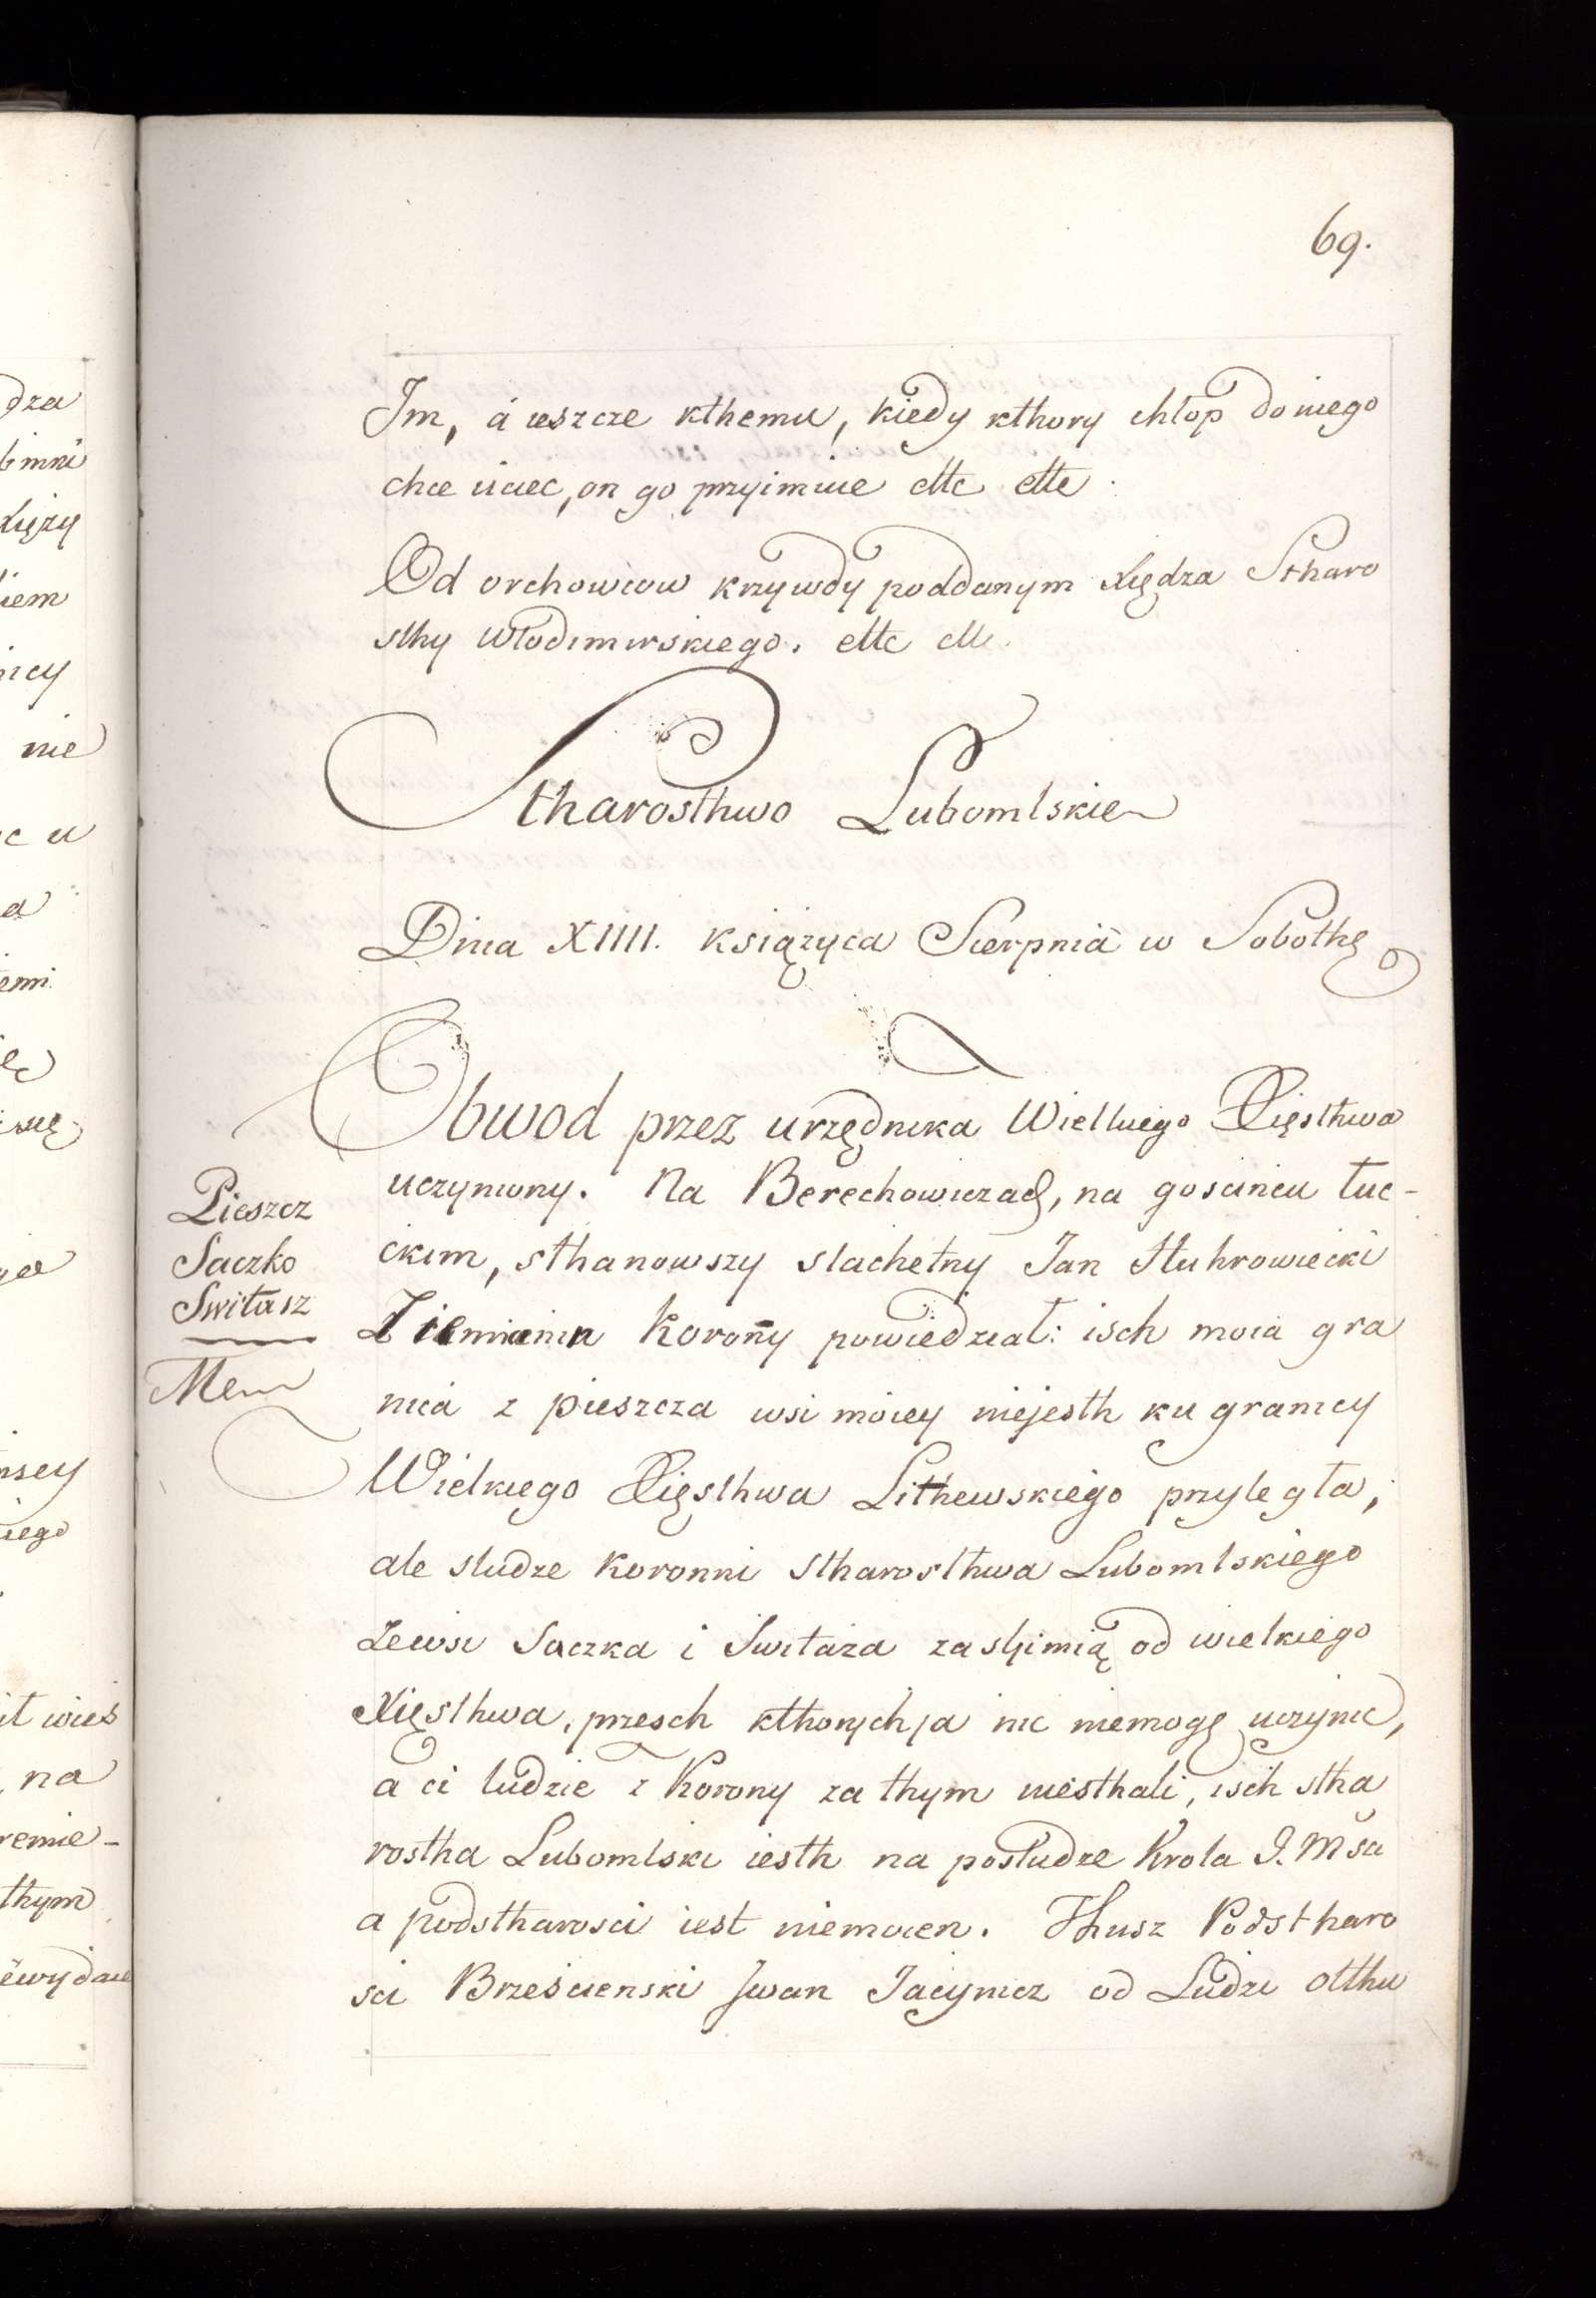 69.
Im, á ieszcze kthemu, kiedy kthory chłop do niego
chce uciec, on go przyimuie ettc ettc.
Od orchowcow krzywdy poddanym Xiędza Stharo
sthy Włodimirskiego. ettc ettc.
Stharosthwo Lubomlskie
Dnia XIIII. księzyca Sierpnia w Sobothę
Obwod przez urzędnika Wielkiego Xięsthwa
uczyniony. Na Berechowiczach, na goscincu łuc-
ckim, sthanowszy slachetny Jan Huhrowiecki
Ziemianin Korony powiedział: isch moia gra
nicá z pieszcza wsi moiey niejesth ku granicy
Wielkiego Xięsthwa Lithewskiego przyległa,
ale sludze koronni stharosthwa Lubomlskiego
zewsi Saczka i Switaza zaslymią od wielkiego
Xięsthwa, przesch kthorych ja nic niemogę uczynic,
a ci ludzie z Korony za thym niesthali, isch stha
rostha Lubomlski iesth na posłudze Krola J. Mści
a podstharosci iest niemocen. Thusz Podstharo
sci Brzescienski Iwan Jacynicz od Ludzi otthu
Pieszcz
Saczko
Switasz
dza
Xięzy
iem
nicy
nie
c u
a
emi
się
nsey
iego
it wies
na
remie-
thym